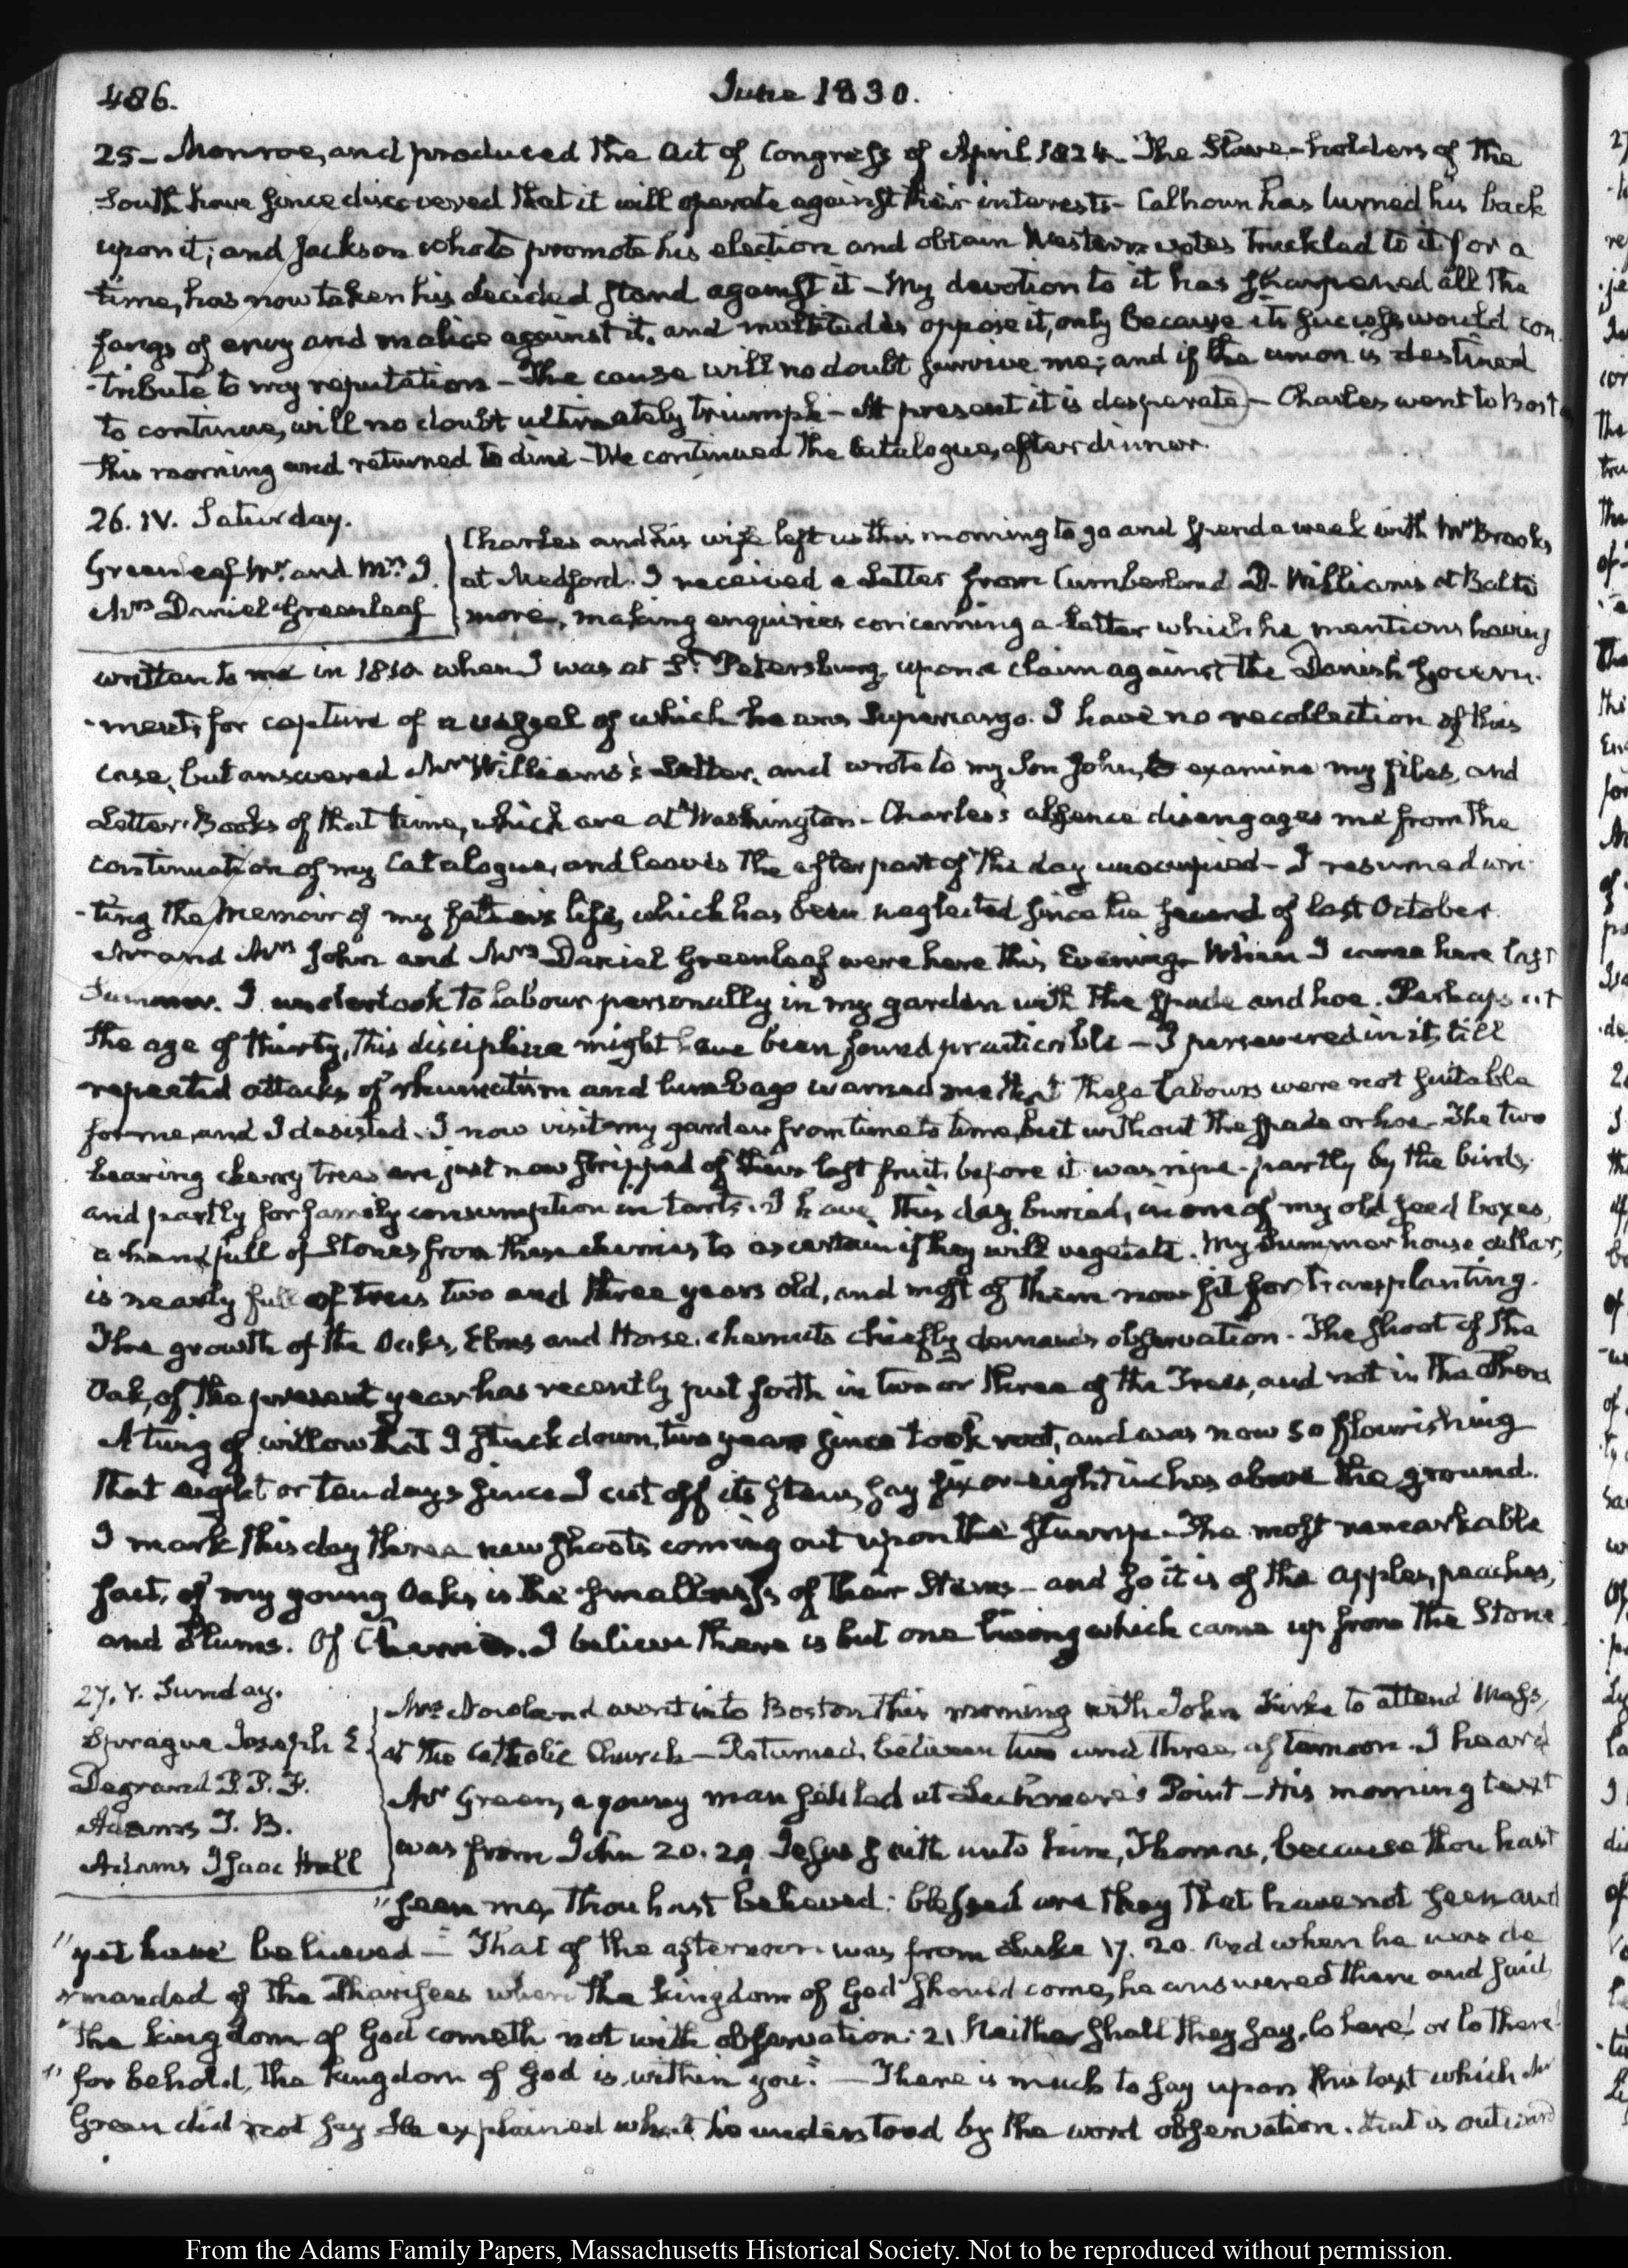 486.
June 1830.
25 - Monroe, and produced the Act of Congress of April 1824. The Slave-holders of the
South have since discovered that it will operate against their interests - Calhoun has turned his back
upon it; and Jackson who to promote his election and obtain Western votes truckled to it for a
time, has now taken his decided stand against it - My devotion to it has sharpened all the
fangs of envy and malice against it, and multitudes oppose it, only because its success would con
-tribute to my reputation - The cause will no doubt survive me; and if the union is destined
to continue, will no doubt ultimately triumph - At present it is desperate - Charles went to Bost
this morning and returned to dine - We continued the Catalogue, after dinner.
26. IV. Saturday.
Greenleaf Mr. and Mrs. J.
Mrs Daniel Greenleaf
Charles and his wife left us this morning to go and spend a week with Mr Brooks
at Medford. I received a Letter from Cumberland D. Williams at Balti
more, making enquiries concerning a Letter which he mentions having
written to me in 1810 when I was at St. Petersburg, upon a claim against the Danish Govern-
-ment, for capture of a vessel of which he was Supercargo. I have no recollection of this
case, but answered Mr Williams's Letter, and wrote to my Son John, to examine my files, and
Letter-Books of that time, which are at Washington - Charles's absence disengages me from the
continuation of my Catalogue, and leaves the after part of the day unoccupied - I resumed wri-
-ting the Memoir of my father's life, which has been neglected since the second of last October
Mr and Mrs John and Mrs Daniel Greenleaf were here this Evening. When I came here last
Summer. I undertook to labour personally in my garden with the spade and hoe. Perhaps at
the age of thirty, this discipline might have been found practicable - I persevered in it, till
repeated attacks of rheumatism and lumbago warned me that these labours were not suitable
for me, and I desisted. I now visit my garden from time to time, but without the spade or hoe - The two
bearing cherry trees are just now stripped of their last fruit, before it was ripe - partly by the birds,
and partly for family consumption in tarts. I have this day buried, in one of my old seed boxes,
a handfull of Stones from these cherries to ascertain if they will vegetate. My Summer house cellar,
is nearly full of trees two and three years old, and most of them now fit for transplanting.
The growth of the Oaks, Elms and Horse-chesnuts chiefly demands observation - The shoot of the
Oak, of the present year has recently put forth in two or three of the Trees, and not in the others
A twig of willow that I stuck down, two years since took root, and was now so flourishing
that eight or ten days since I cut off its stem, say six or eight inches above the ground.
I mark this day three new shoots coming out upon the stump - The most remarkable
fact, of my young Oaks, is the smallness of their Stems - and so it is of the apples, peaches,
and Plums. Of Cherries, I believe there is but one living which came up from the Stone
27. V. Sunday.
Sprague Joseph E.
Degrand P. P. F.
Adams T. B.
Adams Isaac Hull
Mrs Nowland went into Boston this morning with John Kirke to attend Mass,
at the Catholic Church - Returned, between two and three, afternoon. I heard
Mr Green, a young man settled at Lechmere's Point - His morning text
was from John 20. 29 Jesus saith unto him, Thomas, because thou hast
"seen me, thou hast believed: blessed are they that have not seen and
"yet have believed - " That of the afternoon was from Luke 17. 20. And when he was de
"manded of the Pharisees when the kingdom of God should come, he answered them and said,
"the kingdom of God cometh not with observation: 21 Neither shall they say, lo here! or lo there!
"for behold, the kingdom of God is within you." - There is much to say upon this text which Mr
Green did not say. He explained what he understood by the word observation. that is outward
From the Adams Family Papers, Massachusetts Historical Society. Not to be reproduced without permission.